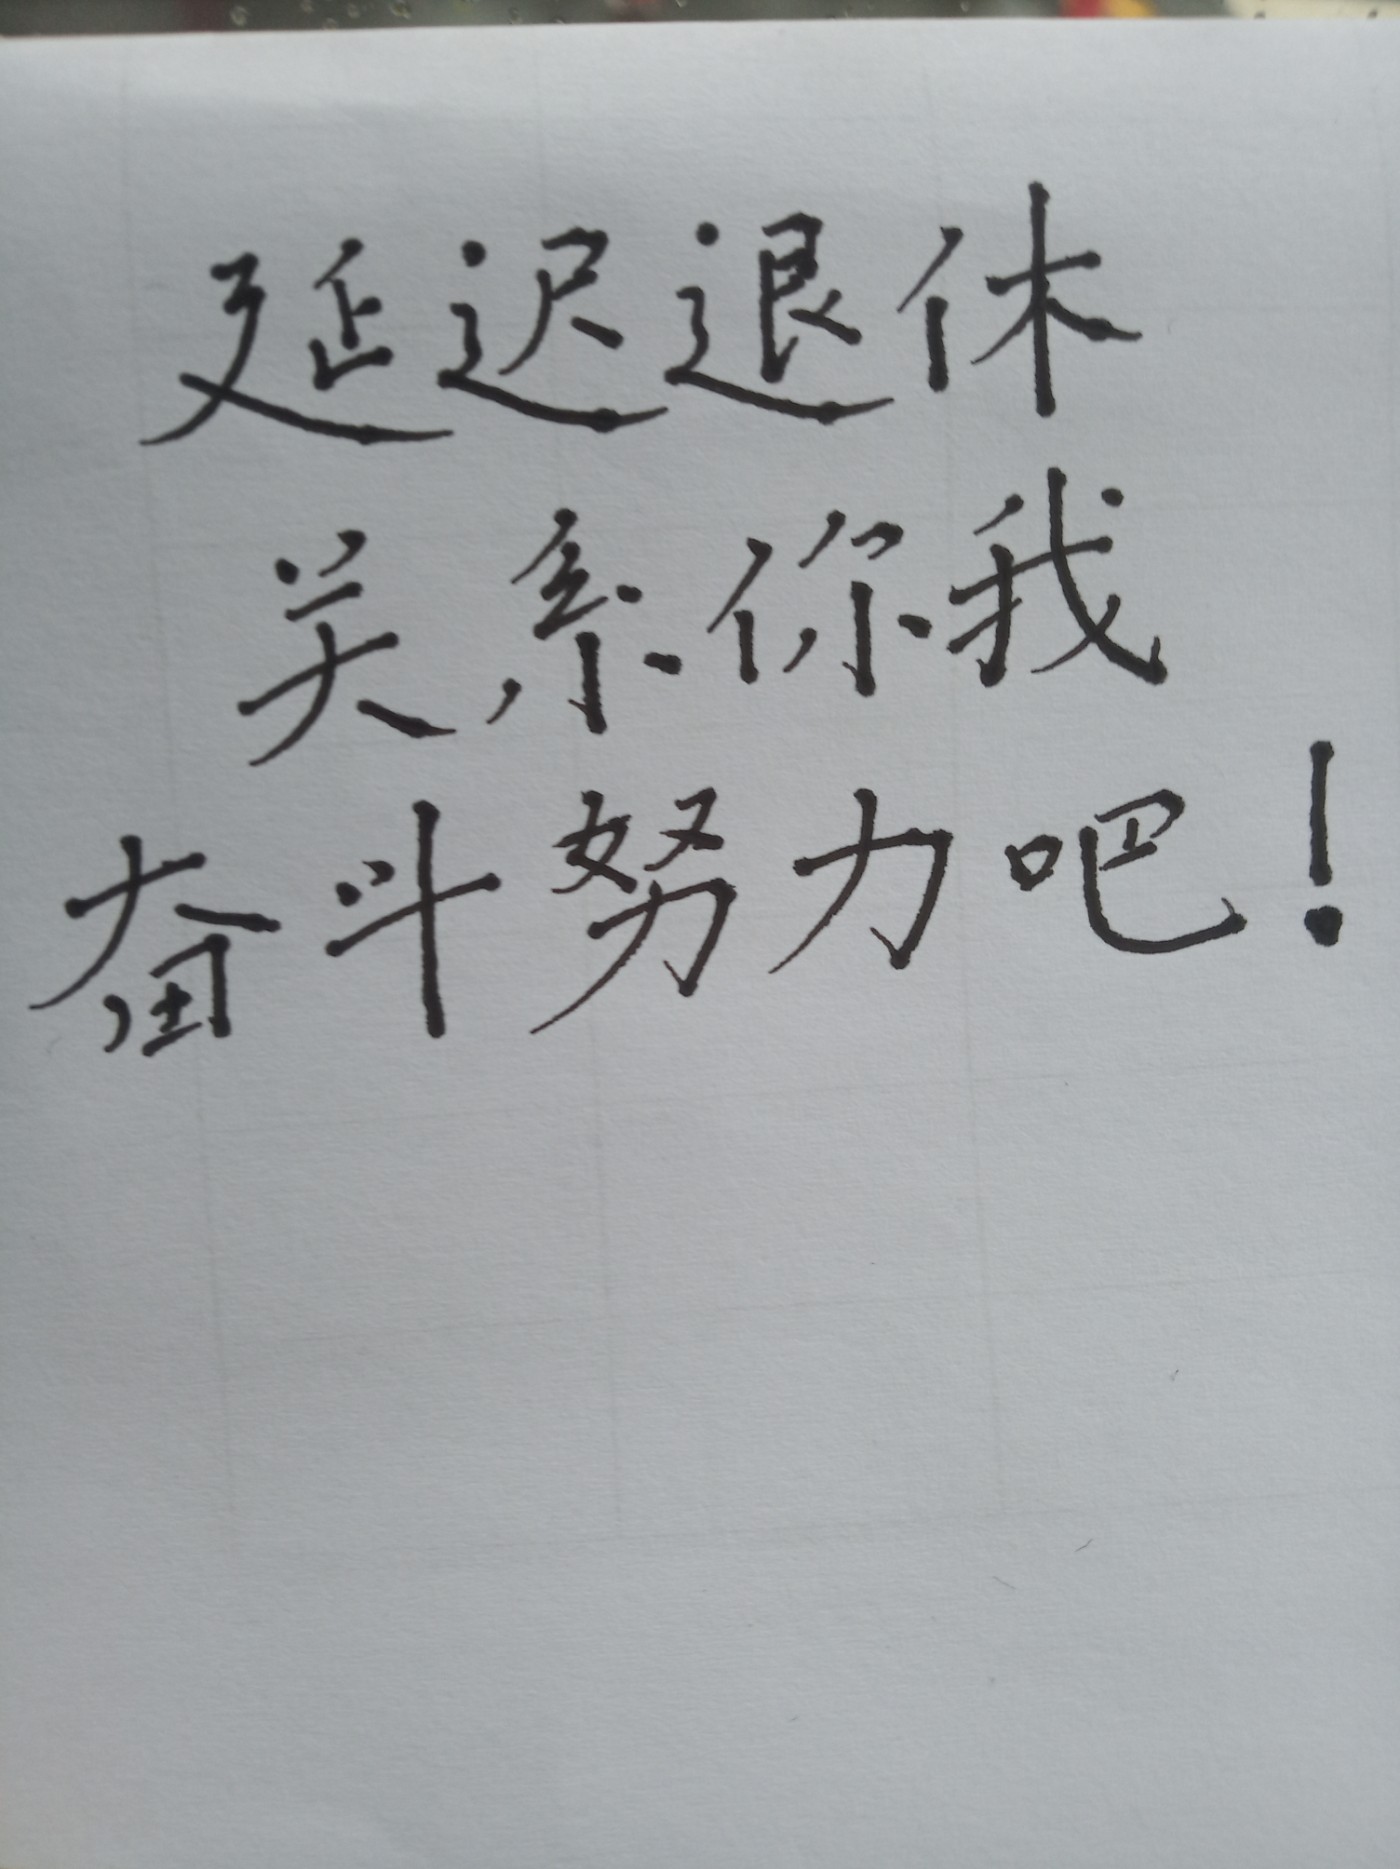 延迟退休
关系你我
奋斗努力吧！